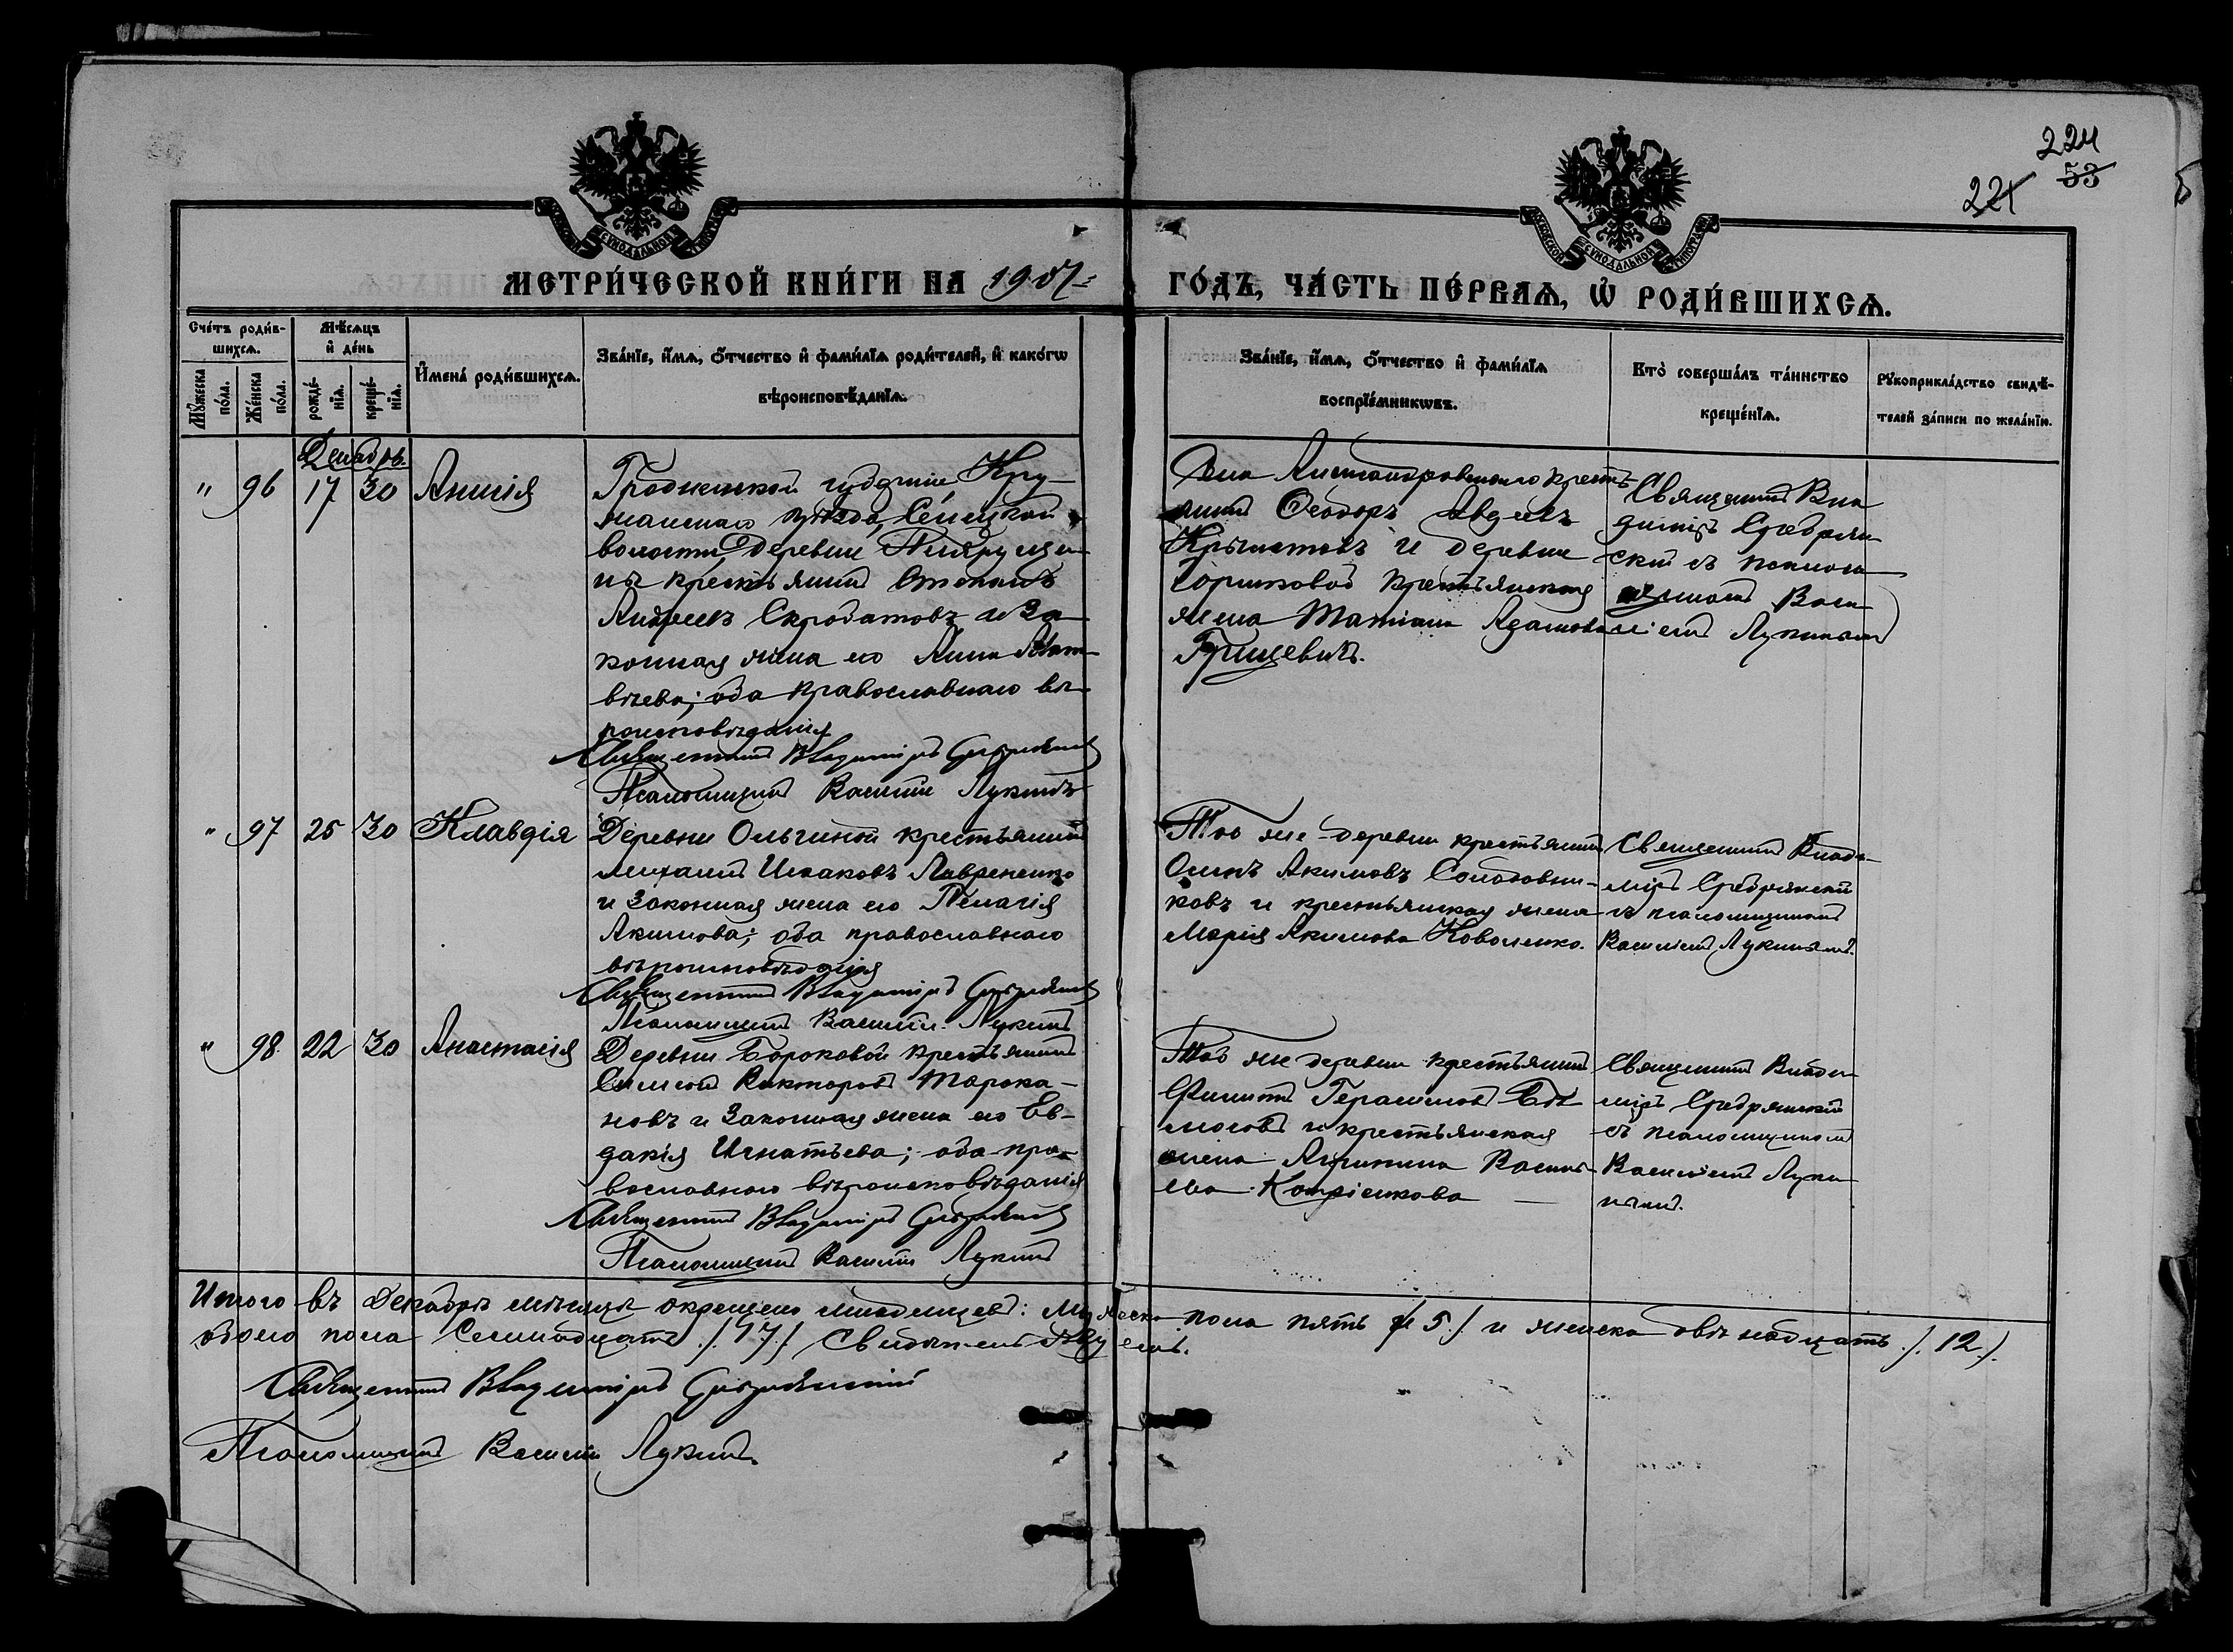 224
53
221
МОСКОВСКОЙ СѴНОДАЛЬНОЙ ТИПОГРАФІИ
МОСКОВСКОЙ СѴНОДАЛЬНОЙ ТИПОГРАФІИ
МЕТРИ́ЧЕСКОЙ КНИ́ГИ НА 1907 ГО́ДЪ, ЧА́СТЬ ПЕ́РВАѦ, Ѡ РОДИ́ВШИХСѦ.
Сче́тъ роди́в-
шихсѧ.
Мѣ́сѧцъ
и де́нь
Мꙋ́жеска
по́ла.
Же́нска
по́ла.
рожде́-
нїѧ.
креще́-
нїѧ.
И҆мена̀ роди́вшихсѧ.
Зва́нїе, и҆́мѧ, ѻ҆́тчество и҆ фами́лїѧ роди́телей, и҆ како́гѡ
вѣроисповѣ́данїѧ.
Зва́нїе, и҆́мѧ, ѻ҆́тчество и҆ фами́лїѧ
воспрїе́мникѡвъ.
Кто̀ соверша́лъ та́инство
креще́нїѧ.
Рꙋкоприкла́дство свидѣ́-
телей за́писи по жела́нїю.
Декабрь.
" 96 17 30 Анисія
Гродненской губерніи Пру-
жанскаго уѣзда, Селецкой
волости, деревни
крестьянинъ Степанъ
Андреевъ Скробатовъ и за-
конная жена его Анна Мат-
вѣева; оба православнаго вѣ-
роисповѣданія
Священникъ Владиміръ Сребрянскій
Псаломщикъ Василій Лукинъ
Села Александровскаго кресть-
янинъ Ѳеодоръ Авдеевъ
и деревни
Горшковой крестьянская
жена Татіана Адамова
Грицевичъ.
Священникъ Вла
диміръ Сребрян
скій съ псалом
щикомъ Васи
ліемъ Лукинымъ
" 97 25 30 Клавдія
Деревни Ольгиной крестьянинъ
Михаилъ Исаковъ Лавриненко
и законная жена его Пелагія
Акимова; оба православнаго
вѣроисповѣданія
Священникъ Владиміръ Сребрянскій
Псаломщикъ Василій Лукинъ
Той же деревни крестьянинъ
Осипъ Акимовъ Солодовни-
ковъ и крестьянская жена
Марія Акимова Коваленко.
Священникъ Влади-
міръ Сребрянскій
съ псаломщикомъ
Василіемъ Лукинымъ.
" 98. 22 30 Анастасія
Деревни Борковой крестьянинъ
Симеонъ Викторовъ Тарака-
новъ и законная жена его Ев-
докія Игнатьева; оба пра-
вославнаго вѣроисповѣданія
Священникъ Владиміръ Сребрянскій
Псаломщикъ Василій Лукинъ
Той же деревни крестьянинъ
Филиппъ Герасимовъ Бѣ
лоусовъ и крестьянская
жена Агрипина Василь-
ева
Священникъ Влади
міръ Сребрянскій
съ псаломщикомъ
Василіемъ Луки
нымъ.
Итого въ Декабрѣ мѣсяцѣ окрещено младенцевъ: мужеска пола пять /.5./ и женска двѣнадцать /.12./.
обоего пола семнадцать /.17./
Священникъ Владиміръ Сребрянскій
Псаломщикъ Василій Лукинъ.